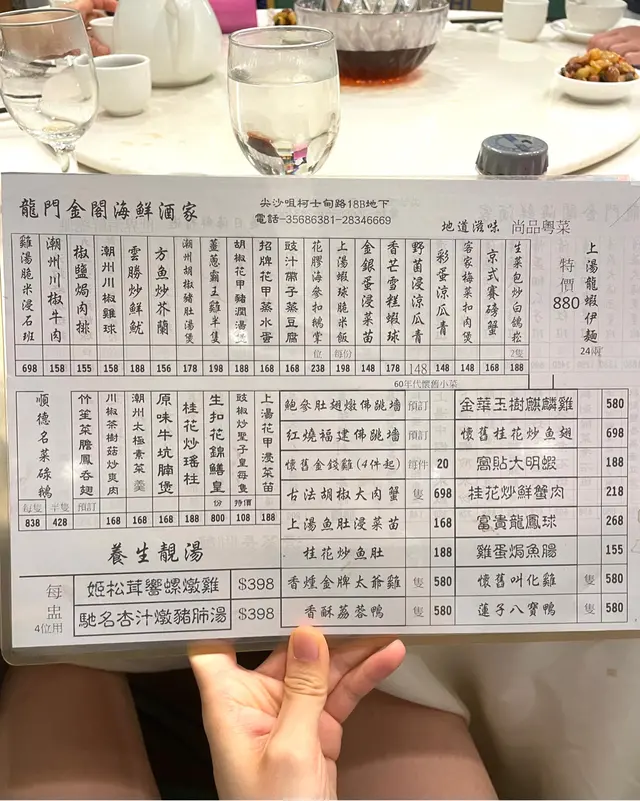 龍門金閣海鮮酒家
尖沙咀柯士甸路18B地下
電話-35686381-28346669
地道滋味 尚品粵菜
雞湯脆米浸石班 698
潮州川椒牛肉 158
椒鹽焗肉排 155
潮州川椒雞球 158
雲勝炒鮮魷 158
方魚炒芥蘭 156
潮州胡椒豬肚湯煲 198
薑蔥霸王雞半隻 198
胡椒花甲豬潤湯煲 188
招牌花甲蒸水蛋 168
豉汁帶子蒸豆腐 168
花膠海參扣鵝掌 位 238
上湯蝦球脆米飯 每份 198
金銀蛋浸菜苗 168
香芒雪糕蝦球 178
野菌浸涼瓜青 148
彩蛋涼瓜青 148
客家梅菜扣肉煲 148
京式賽磅蟹 168
生菜包炒白鴿崧 2隻 188
特價 880
上湯龍蝦伊麵 24兩
順德名菜碌鵝 每隻 838 半隻 428
竹笙菜膽鳳吞翅 預訂
川椒茶樹菇炒爽肉 168
潮州太極素菜羹 168
原味牛坑腩煲 168
桂花炒瑤柱 188
生扣花錦鱔皇 份 800
豉椒炒聖子皇每隻 時價 108
上湯花甲浸菜苗 188
60年代懷舊小菜
鮑參肚翅燉佛跳墻 預訂
紅燒福建佛跳墻 預訂
懷舊金錢雞(4件起) 每件 20
古法胡椒大肉蟹 隻 698
上湯魚肚浸菜苗 168
桂花炒魚肚 188
香燻金牌太爺雞 隻 580
香酥荔蓉鴨 隻 580
金華玉樹麒麟雞 580
懷舊桂花炒魚翅 698
窩貼大明蝦 188
桂花炒鮮蟹肉 218
富貴龍鳳球 268
雞蛋焗魚腸 155
懷舊叫化雞 隻 580
蓮子八寶鴨 隻 580
養生靚湯
每盅 4位用
姬松茸響螺燉雞 $398
馳名杏汁燉豬肺湯 $398